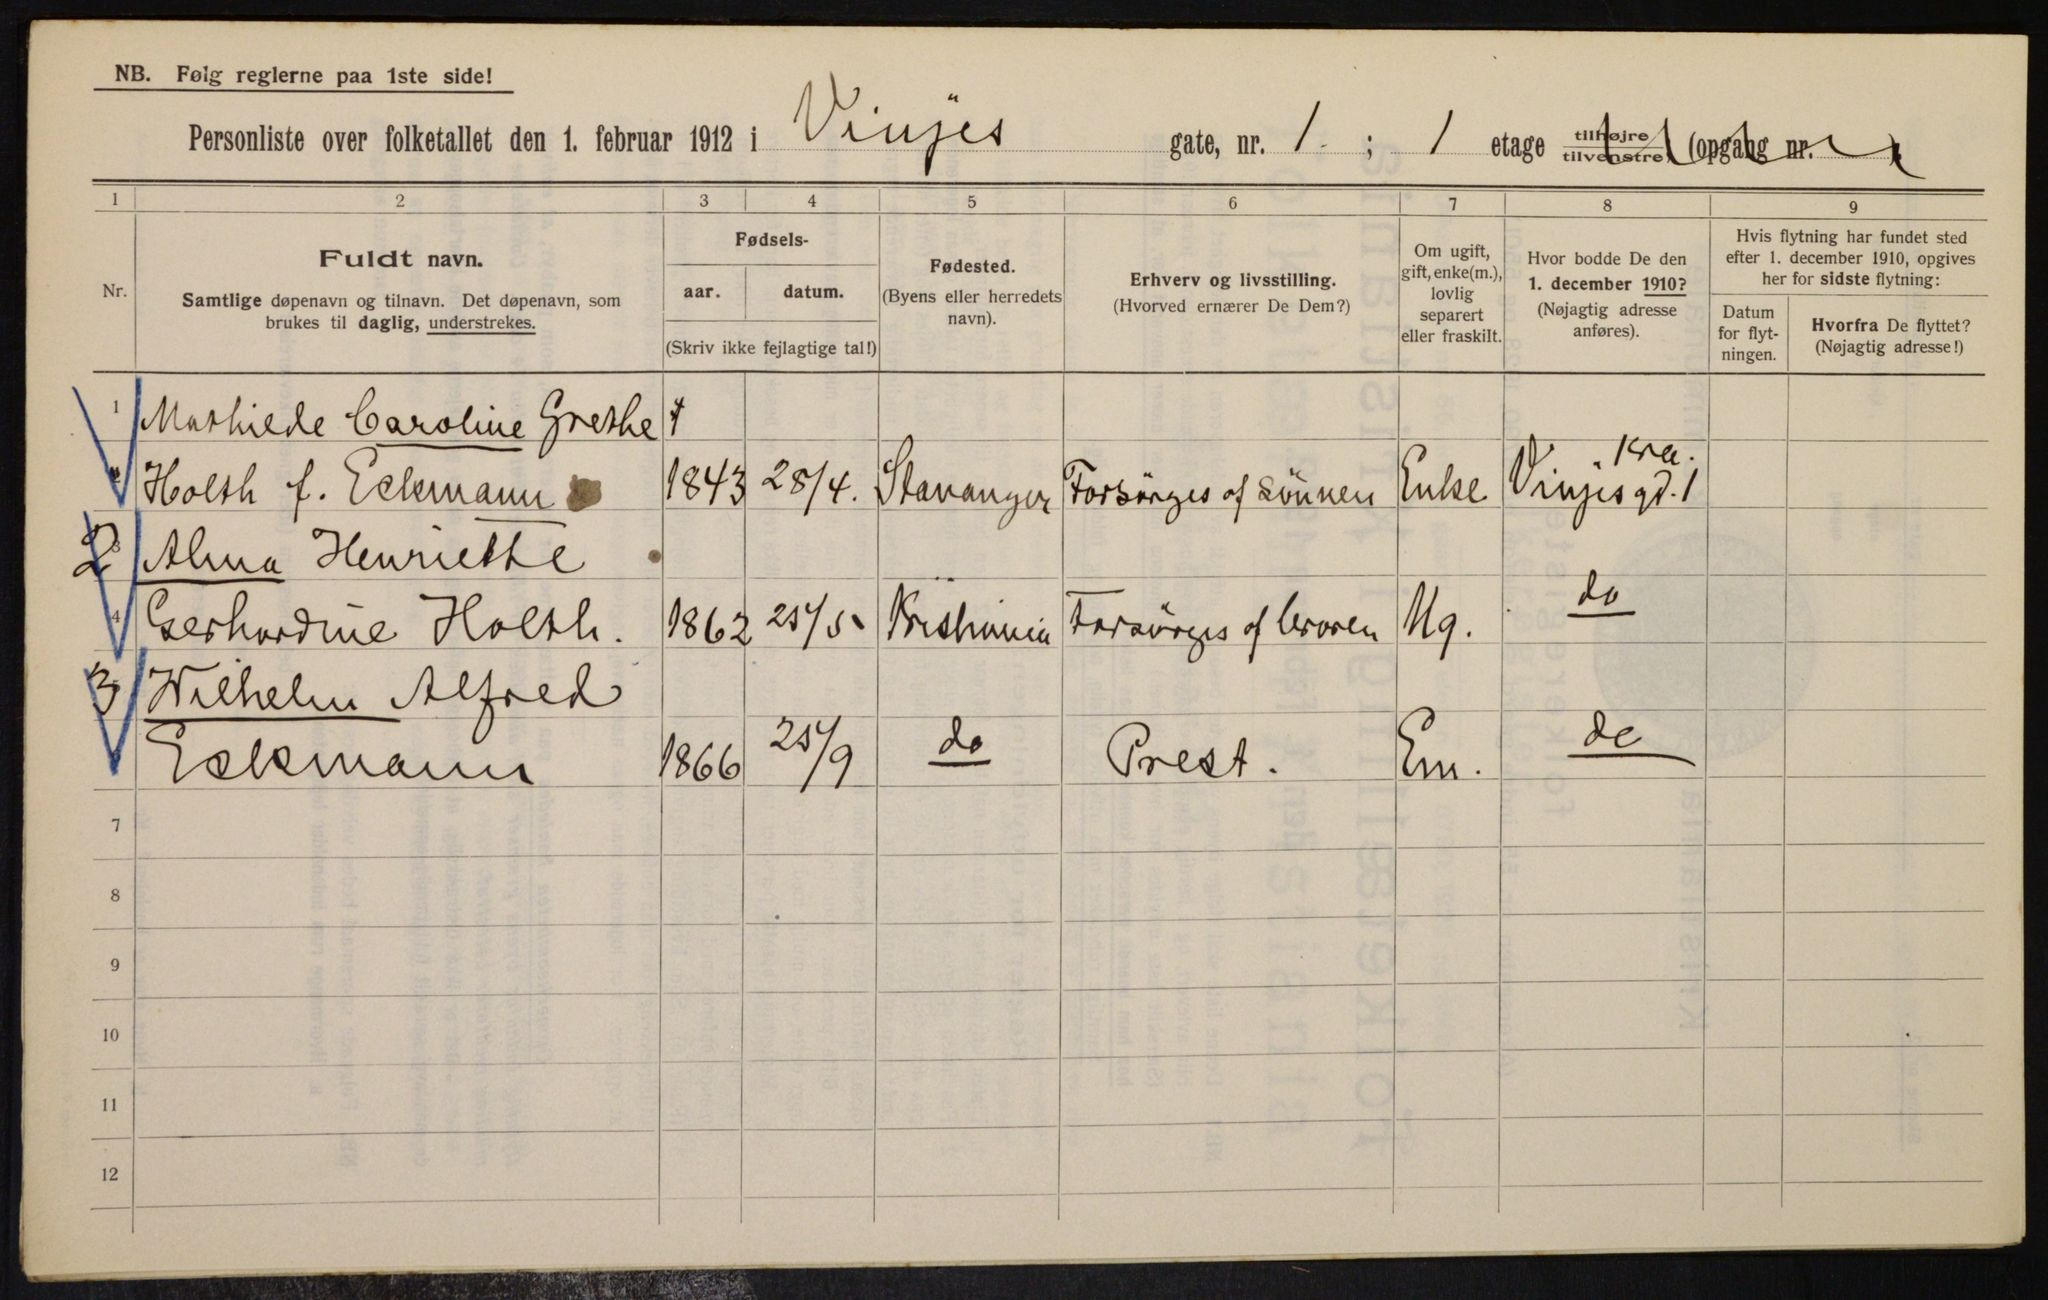 NB. Følg reglerne paa 1ste side!
Personliste over folketallet den 1. februar 1912 i Vinjes gate, nr. 1 ; 1 etage tilhøjre/tilvenstre, (opgang nr. ).
1 2 3 4 5 6 7 8 9
Nr.
Fuldt navn.
Samtlige døpenavn og tilnavn. Det døpenavn, som
brukes til daglig, understrekes.
Fødsels-
aar. datum.
(Skriv ikke fejlagtige tal!)
Fødested.
(Byens eller herredets
navn).
Erhverv og livsstilling.
(Hvorved ernærer De Dem?)
Om ugift,
gift, enke(m.),
lovlig
separert
eller fraskilt.
Hvor bodde De den
1. december 1910?
(Nøjagtig adresse
anføres).
Hvis flytning har fundet sted
efter 1. december 1910, opgives
her for sidste flytning:
Datum
for flyt-
ningen.
Hvorfra De flyttet?
(Nøjagtig adresse!)
1 Mathilde Caroline Grethe
Holth f. Eckmann 1843 28/4. Stavanger Forsörges af Sönnen Enke Kra. Vinjes gd. 1
2 Alma Henriette
4 Gerhardine Holth. 1862 25/5 Kristiania Forsörges af Broren Ug. do
3 Wilhelm Alfred
Eckmann 1866 25/9 do Prest. Em. do
7
8
9
10
11
12